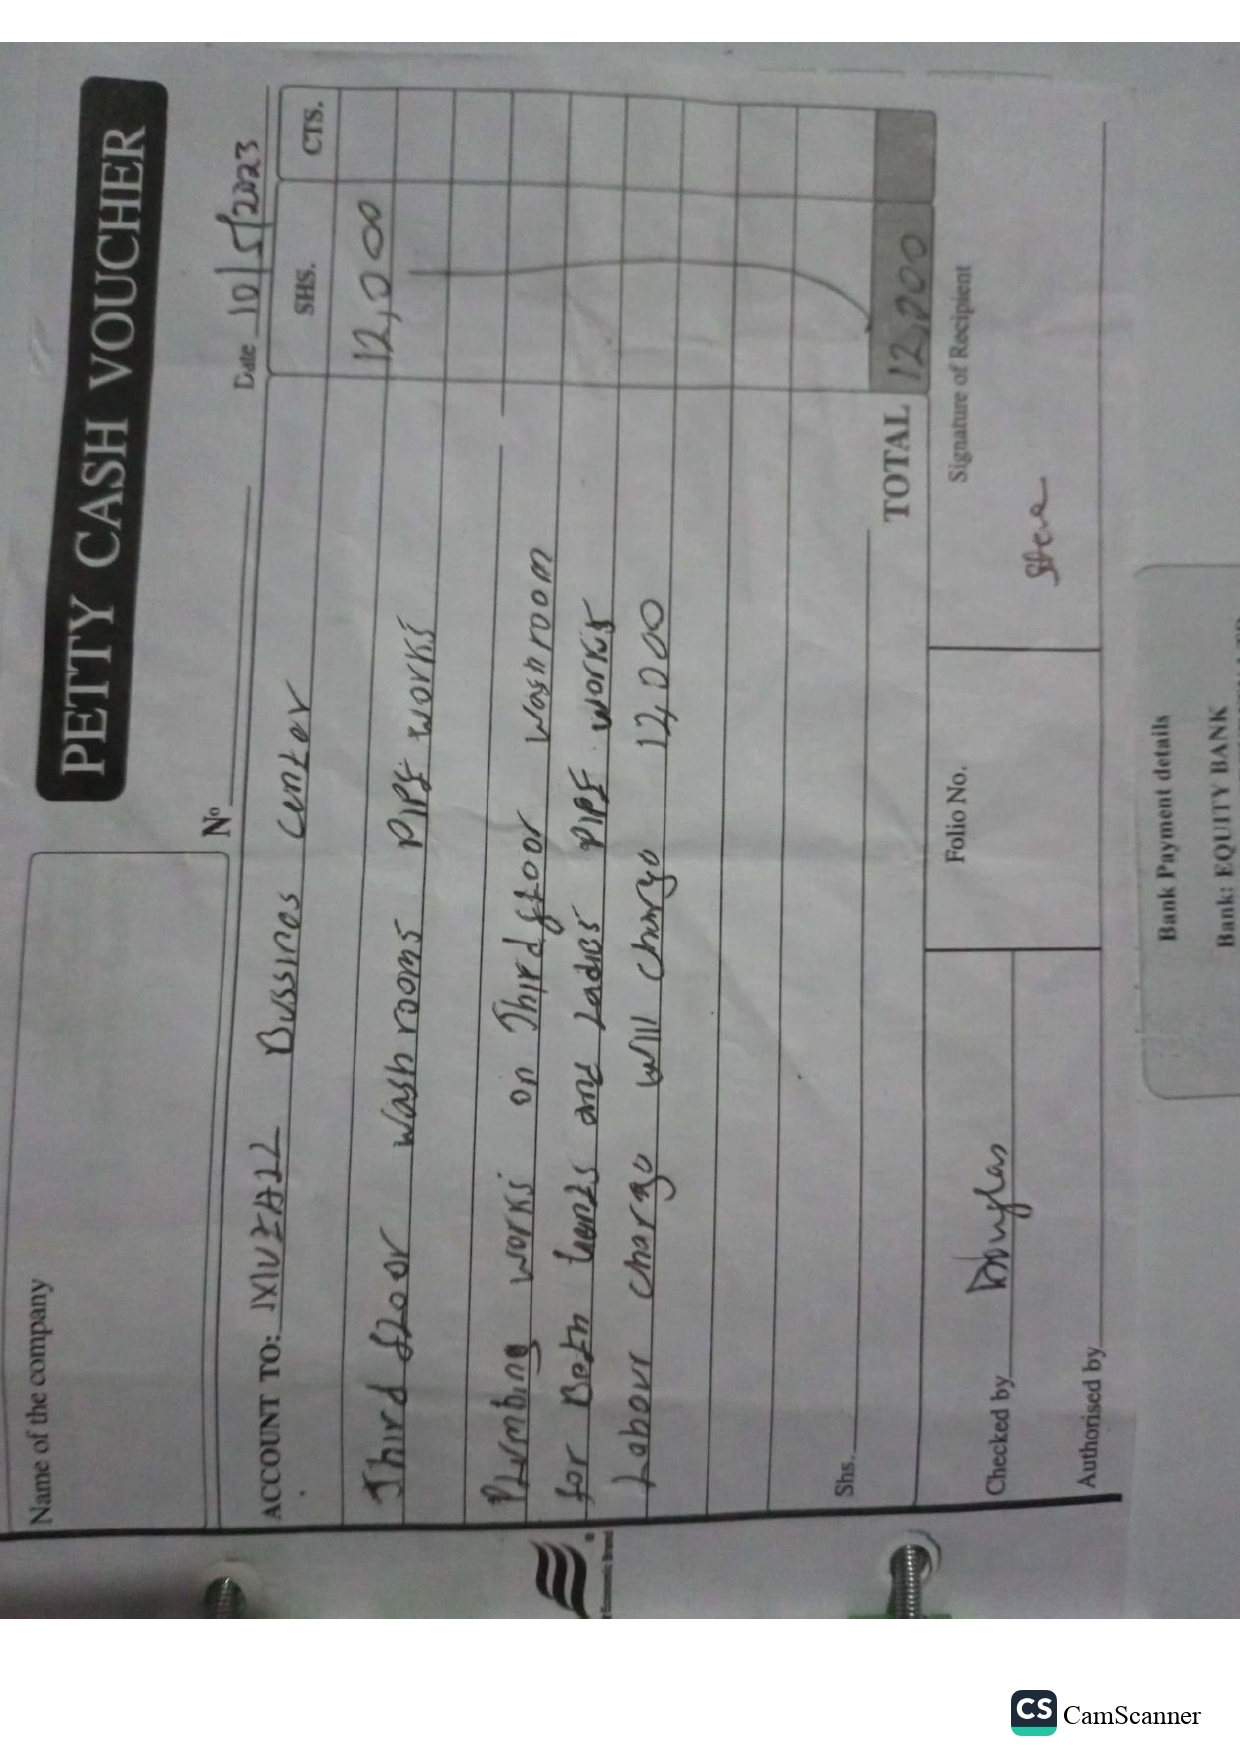 PETTY CASH VOUCHER
Name of the company
No
Date 10/5/2023
ACCOUNT TO: Bussines center
SHS. CTS.
Third floor wash rooms PIPE works 12,000
Plumbing works on Third floor wash room
for Both Gents and Ladies PIPE works
Labour charge will charge 12,000
Shs.
TOTAL 12,000
Checked by Douglas
Folio No.
Signature of Recipient
Steve
Authorised by
Bank Payment details
Bank: EQUITY BANK
CS CamScanner